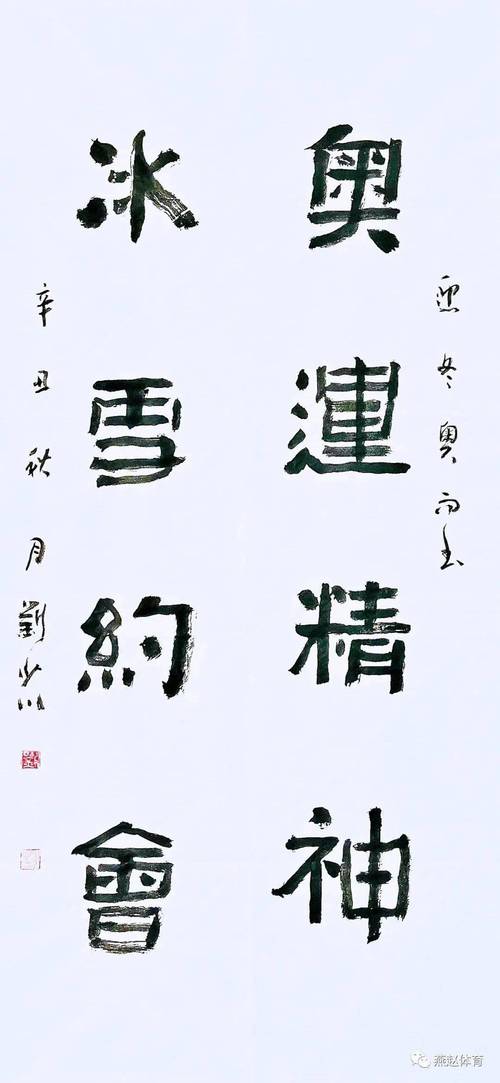 迎冬奥而书
奥運精神
冰雪約會
辛丑秋月劉少川
燕赵体育